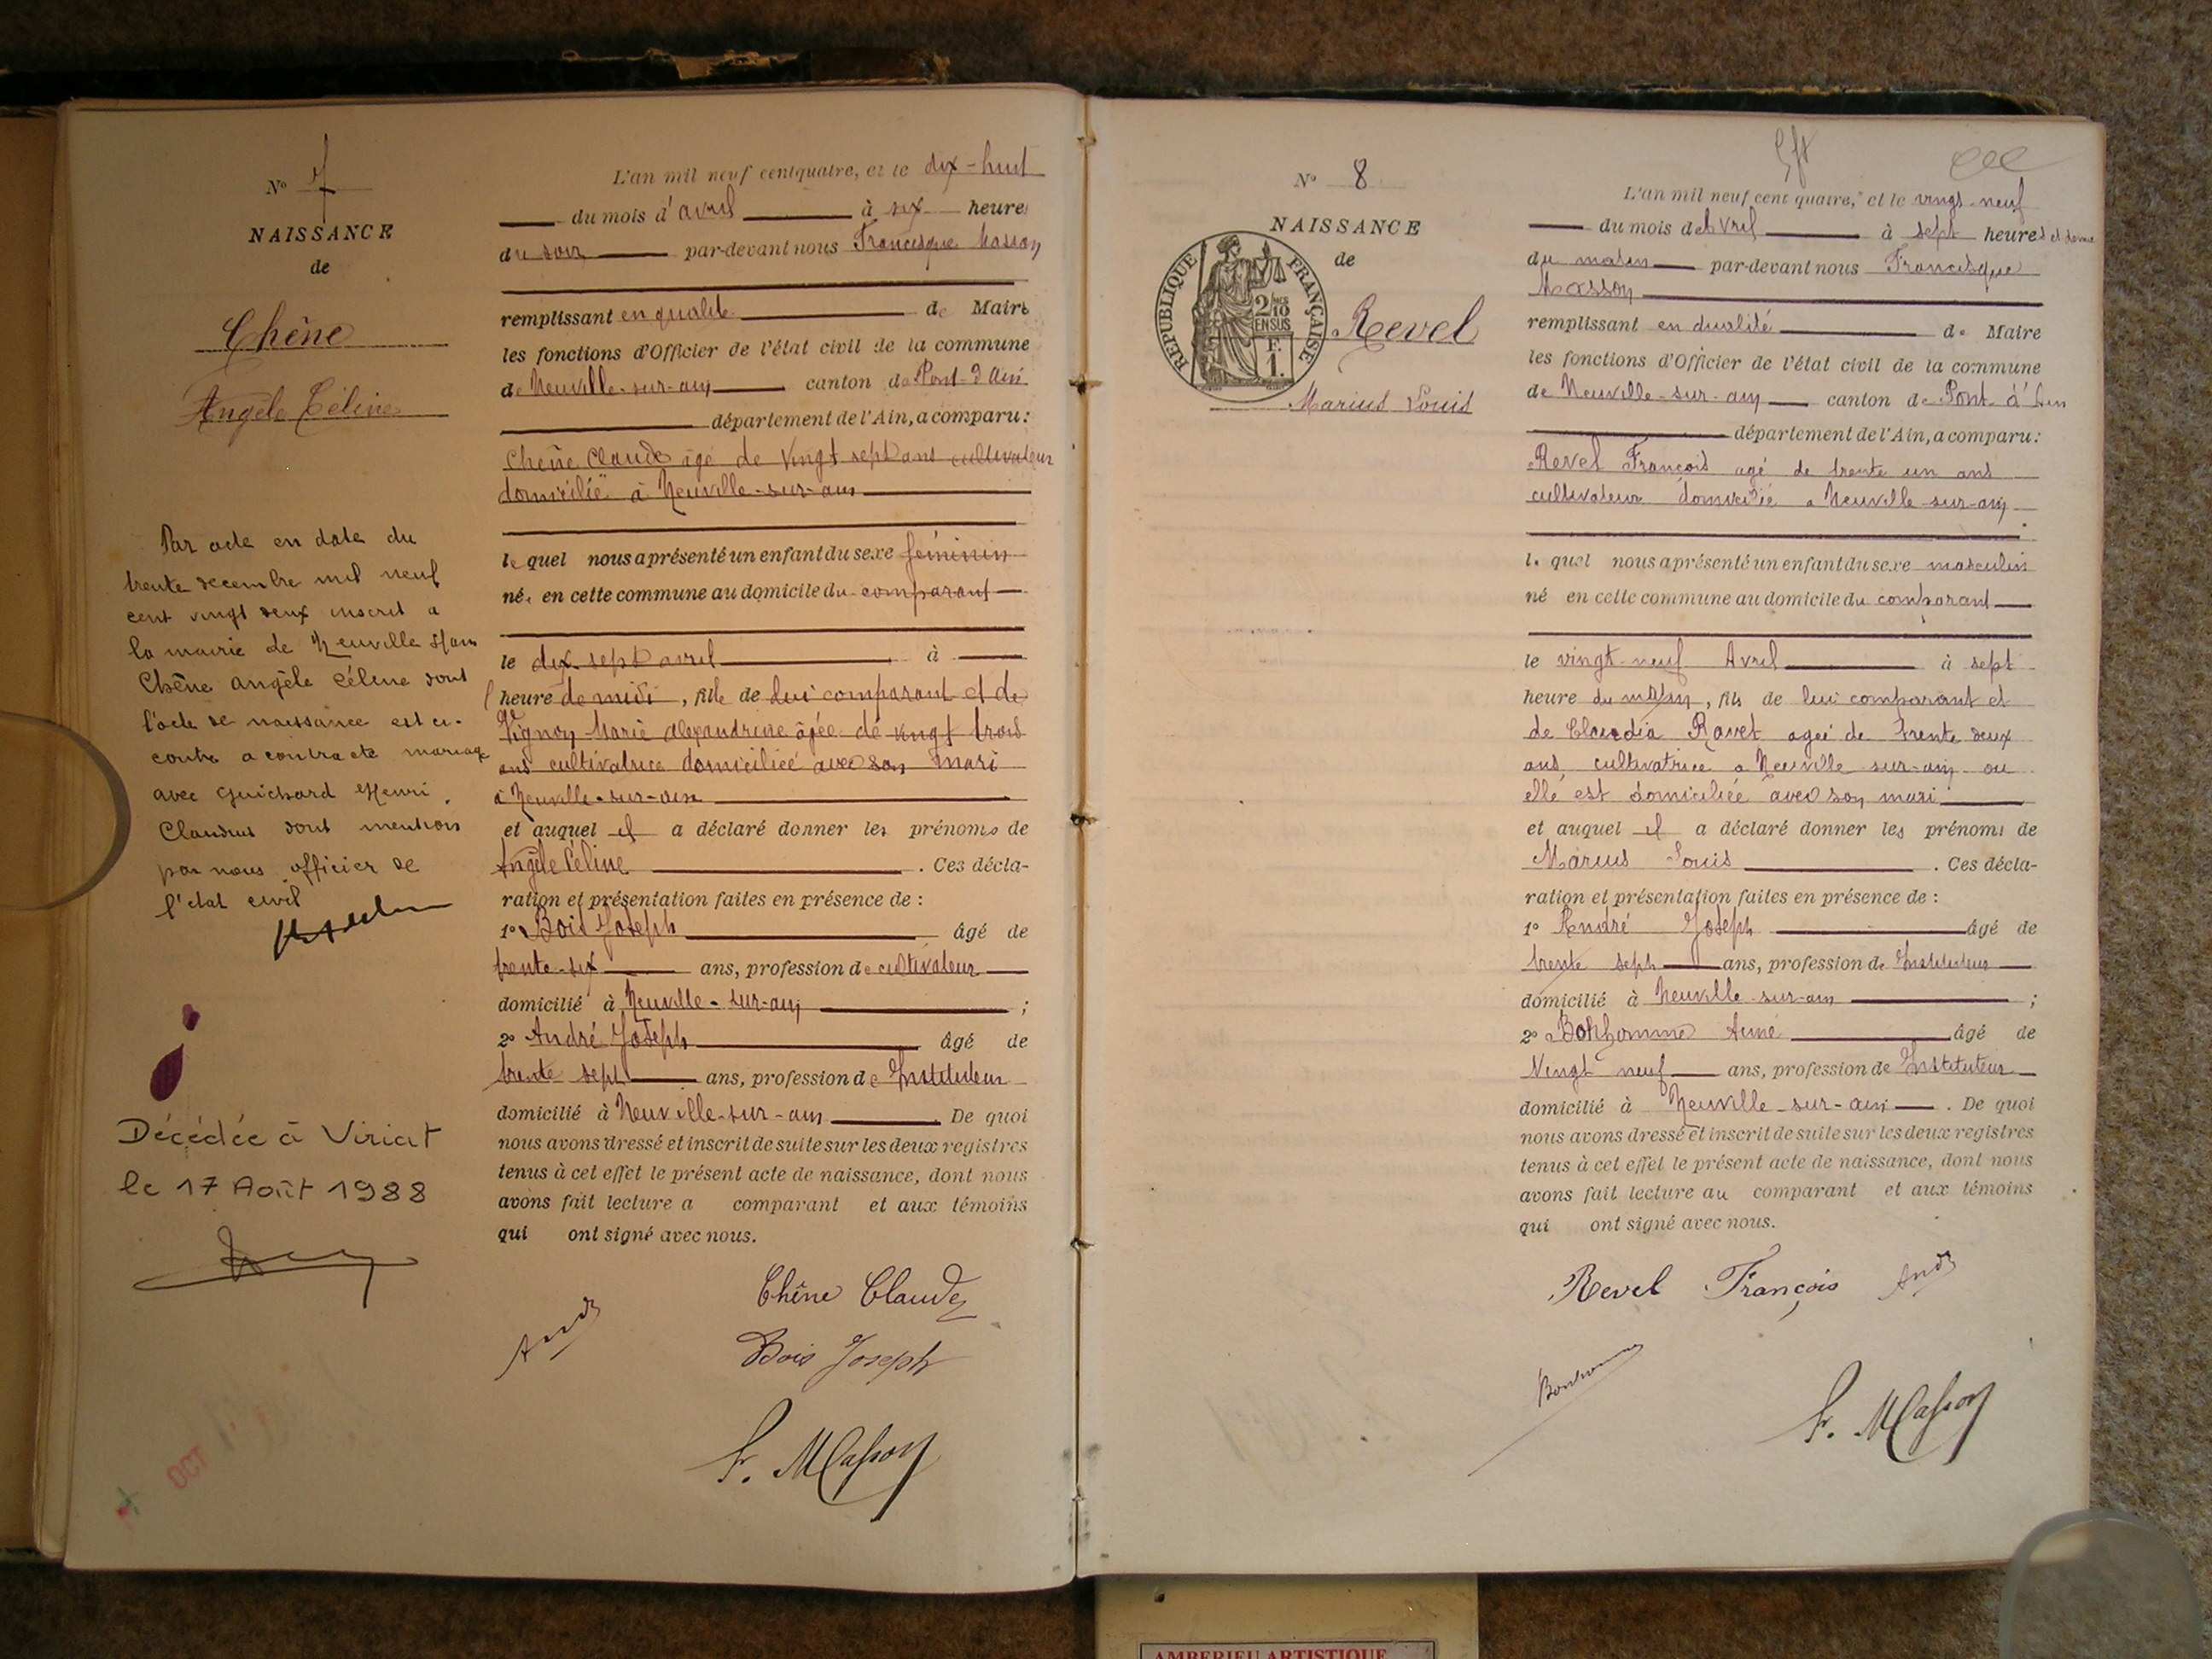 N° 7
NAISSANCE
de
Chêne
Angèle Céline
Par acte en date du
trente decembre mil neuf
cent vingt deux inscrit a
la mairie de Neuville s/ain
Chêne angèle Céline dont
l'acte de naissance est ci-
contre a contracté mariage
avec Guichard Henri
Claudius dont mention
par nous officier de
l'etat civil
Décédée à Viriat
le 17 Août 1988
OCT
L'an mil neuf cent quatre, et le dix-huit
du mois d'avril à six heures
du soir par-devant nous Francisque Masson
remplissant en qualité de Maire
les fonctions d'Officier de l'état civil de la commune
de Neuville-sur-ain canton de Pont-d'Ain
département de l'Ain, a comparu:
Chêne Claude âgé de vingt sept ans cultivateur
domicilié à Neuville-sur-ain
lequel nous a présenté un enfant du sexe féminin
née en cette commune au domicile du comparant
le dix-sept avril à
heure de midi, fille de lui comparant et de
Vignon Marie alexandrine âgée de vingt trois
ans cultivatrice domiciliée avec son mari
à Neuville-sur-ain
et auquel il a déclaré donner les prénoms de
Angèle Céline. Ces décla-
ration et présentation faites en présence de :
1° Bois Joseph âgé de
trente-six ans, profession de cultivateur
domicilié à Neuville-sur-ain ;
2° André Joseph âgé de
trente sept ans, profession de Instituteur
domicilié à Neuville-sur-ain. De quoi
nous avons dressé et inscrit de suite sur les deux registres
tenus à cet effet le présent acte de naissance, dont nous
avons fait lecture a comparant et aux témoins
qui ont signé avec nous.
Chêne Claude
André
Bois Joseph
Fr. Masson
N° 8
NAISSANCE
de
RÉPUBLIQUE FRANÇAISE
2/10 EN SUS
F. 1.
Revel
Marius Louis
L'an mil neuf cent quatre, et le vingt-neuf
du mois d'Avril à sept heures et demie
du matin par-devant nous Francisque
Masson
remplissant en qualité de Maire
les fonctions d'Officier de l'état civil de la commune
de Neuville-sur-ain canton de Pont d'Ain
département de l'Ain, a comparu:
Revel François agé de trente un ans
cultivateur domicilié a Neuville-sur-ain
lequel nous a présenté un enfant du sexe masculin
né en cette commune au domicile du comparant
le vingt-neuf Avril à sept
heure du matin, fils de lui comparant et
de Claudia Ravet agée de trente deux
ans cultivatrice a Neuville sur-ain ou
elle est domiciliée avec son mari
et auquel il a déclaré donner les prénoms de
Marius Louis. Ces décla-
ration et présentation faites en présence de :
1° André Joseph âgé de
trente sept ans, profession de Instituteur
domicilié à Neuville-sur-ain ;
2° Bonhomme Aimé âgé de
Vingt neuf ans, profession de Instituteur
domicilié à Neuville-sur-ain. De quoi
nous avons dressé et inscrit de suite sur les deux registres
tenus à cet effet le présent acte de naissance, dont nous
avons fait lecture au comparant et aux témoins
qui ont signé avec nous.
Revel François André
Bonhomme
Fr. Masson
AMBERIEU ARTISTIQUE